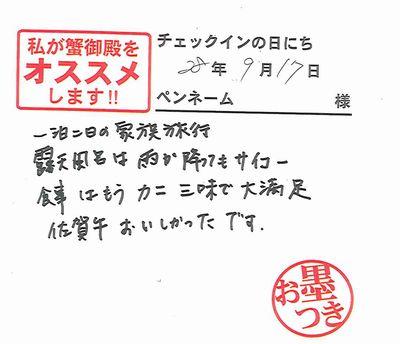 私が蟹御殿を
オススメ
します!!
チェックインの日にち
28年9月17日
ペンネーム 様
一泊二日の家族旅行
露天風呂は雨が降ってもサイコー
食事はもうカニ三昧で大満足
佐賀牛おいしかったです.
お墨つき